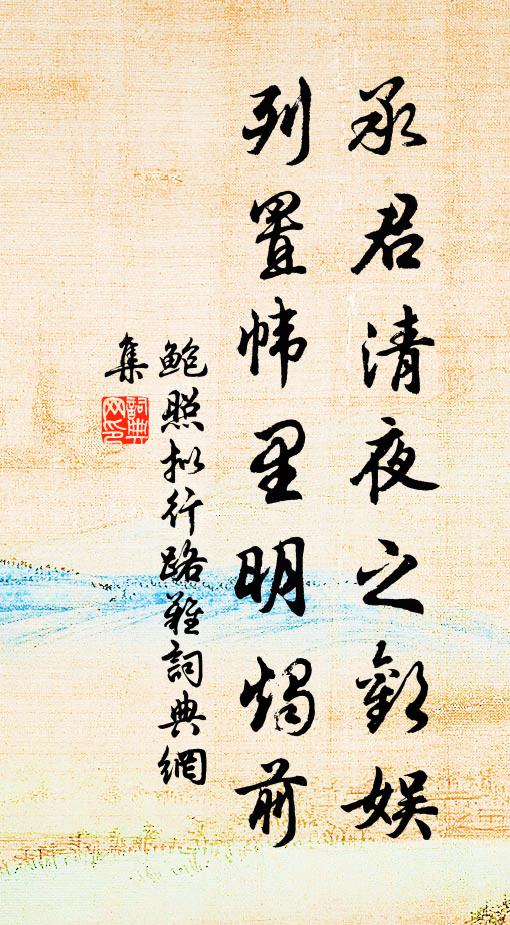 承君清夜之歡娛
列置帏里明燭前
鮑照拟行路難詞典網
集
詞典網印